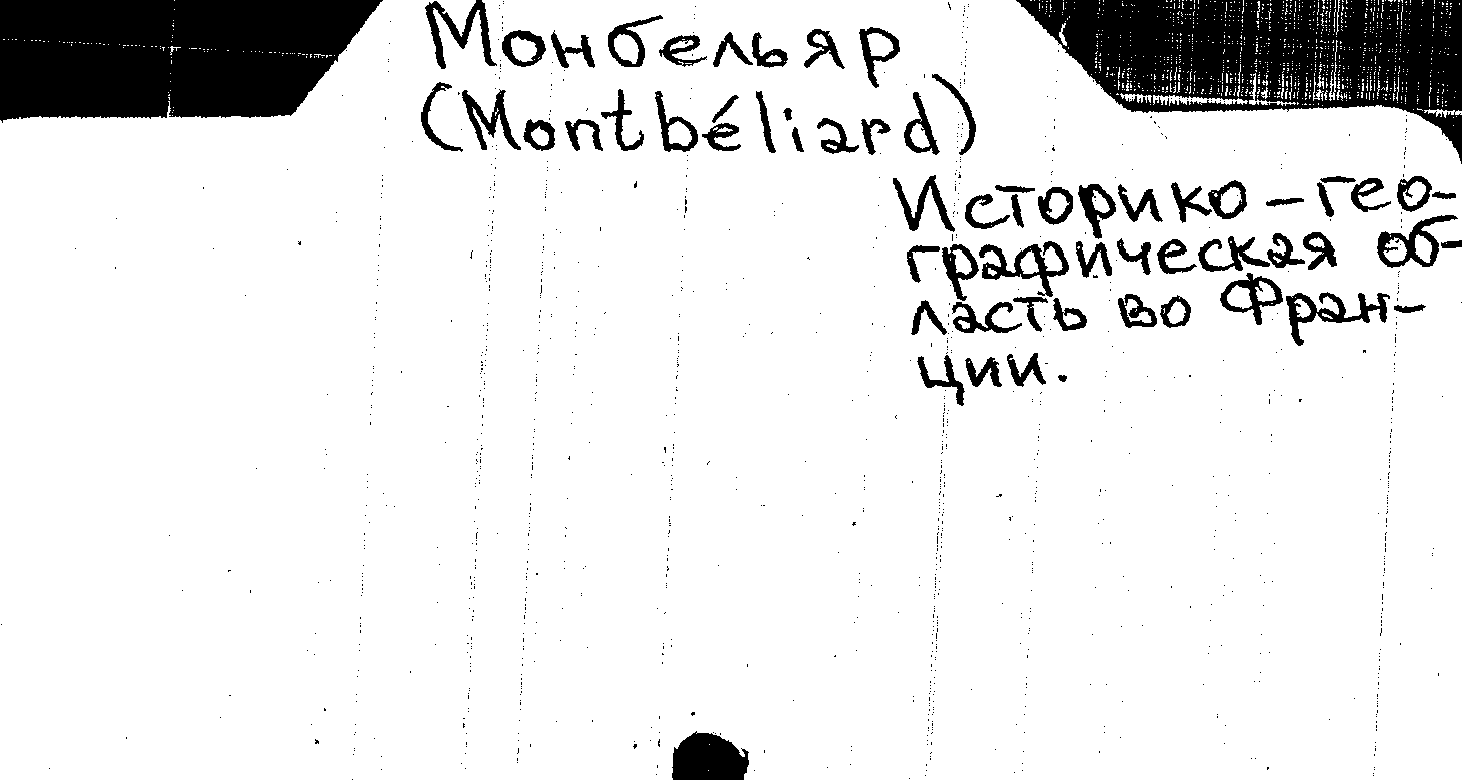 Монбельяр
(Montbéliard)
Историко-гео-
графическая об-
ласть во Фран-
ции.